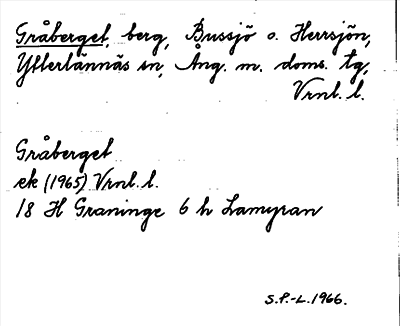 Gråberget, berg, Bussjö o. Herrsjön,
Ytterlännäs sn, Ång. m. doms. tg,
Vrnl. l.
Gråberget
ek (1965) Vrnl. l.
18 H Graninge 6 h Lamyran
S.P.-L. 1966.